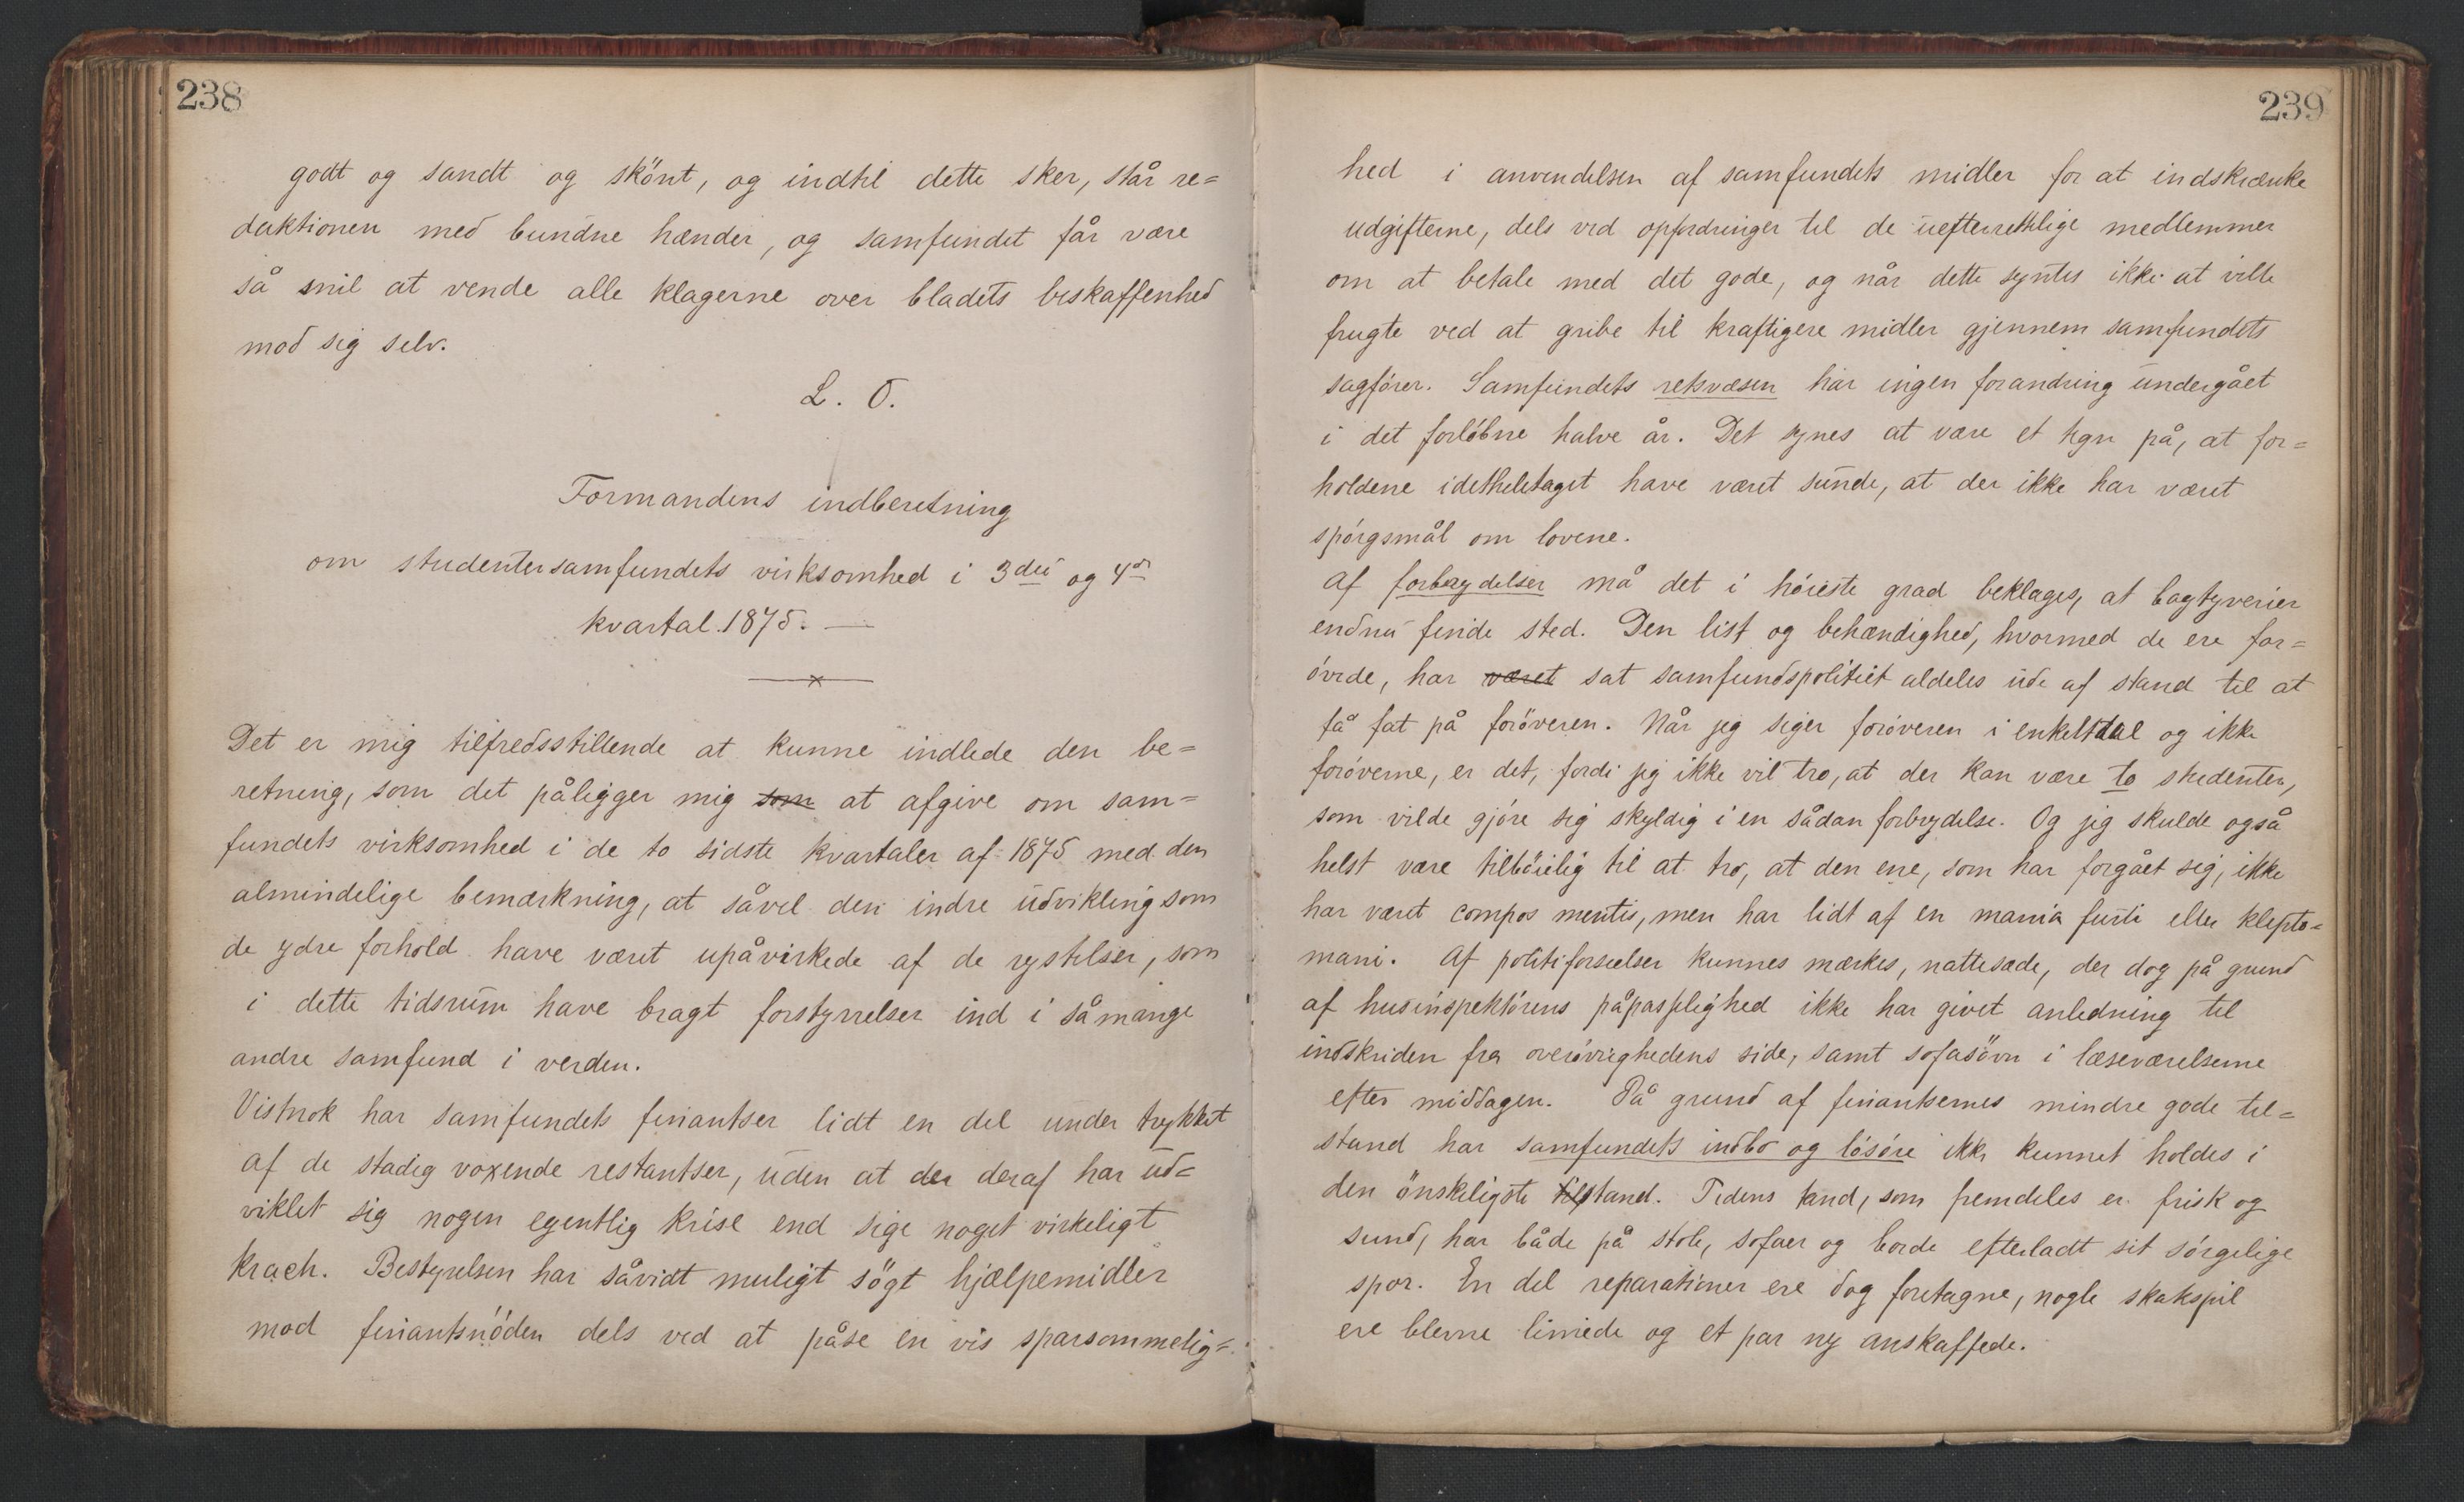 238
godt og sandt og skönt, og indtil dette sker, står re=
daktionen med bundne hænder, og samfundet får være
så snil at vende alle klagerne over bladets beskaffenhed
mod sig selv.
L. O.
Formandens indberetning
om studentersamfundets virksomhed i 3die og 4de
kvartal 1875. —
Det er mig tilfredsstillende at kunne indlede den be=
retning, som det påligger mig som at afgive om sam=
fundets virksomhed i de to sidste kvartaler af 1875 med den
almindelige bemærkning, at såvel den indre udvikling som
de ydre forhold have været upåvirkede af de rystelser, som
i dette tidsrum have bragt forstyrrelser ind i så mange
andre samfund i verden.
Vistnok har samfundets finantser lidt en del under trykket
af de stadig voxende restantser, uden at der deraf har ud=
viklet sig nogen egentlig krise end sige noget virkeligt
krach. Bestyrelsen har såvidt muligt sögt hjælpemidler
mod finantsnöden dels ved at påse en vis sparsommelig=
239
hed i anvendelsen af samfundets midler for at indskrænke
udgifterne, dels ved opfordringer til de uefterrettelige medlemmer
om at betale med det gode, og når dette syntes ikke at ville
frugte ved at gribe til kraftigere midler gjennem samfundets
sagförer. Samfundets retsvæsen har ingen forandring undergået
i det forlöbne halve år. Det synes at være et tegn på, at for=
holdene idetheletaget have været sunde, at der ikke har været
spörgsmål om lovene.
Af forbrydelser må det i höieste grad beklages, at bogtyverier
endnu finde sted. Den list og behændighed, hvormed de ere for=
övede, har været sat samfundspolitiet aldeles ude af stand til at
få fat på foröveren. Når jeg siger foröveren i enkelttal og ikke
foröverne, er det, fordi jeg ikke vil tro, at der kan være to studenter,
som vilde gjöre sig skyldig i en sådan forbrydelse. Og jeg skulde også
helst være tilböielig til at tro, at den ene, som har forgået sig, ikke
har været compos mentis, men har lidt af en mania furti eller klepto=
mani. Af politiforseelser kunnes mærkes, nattesæde, der dog på grund
af husinspektörens påpasselighed ikke har givet anledning til
indskriden fra overövrighedens side, samt sofasövn i læseværelserne
efter middagen. På grund af finantsernes mindre gode til=
stand har samfundets indbo og lösöre ikke kunnet holdes i
den önskeligste tilstand. Tidens tand, som fremdeles er frisk og
sund, har både på stole, sofaer og borde efterladt sit sörgelige
spor. En del reparationer ere dog foretagne, nogle skakspil
ere blevne limede og et par ny anskaffede.